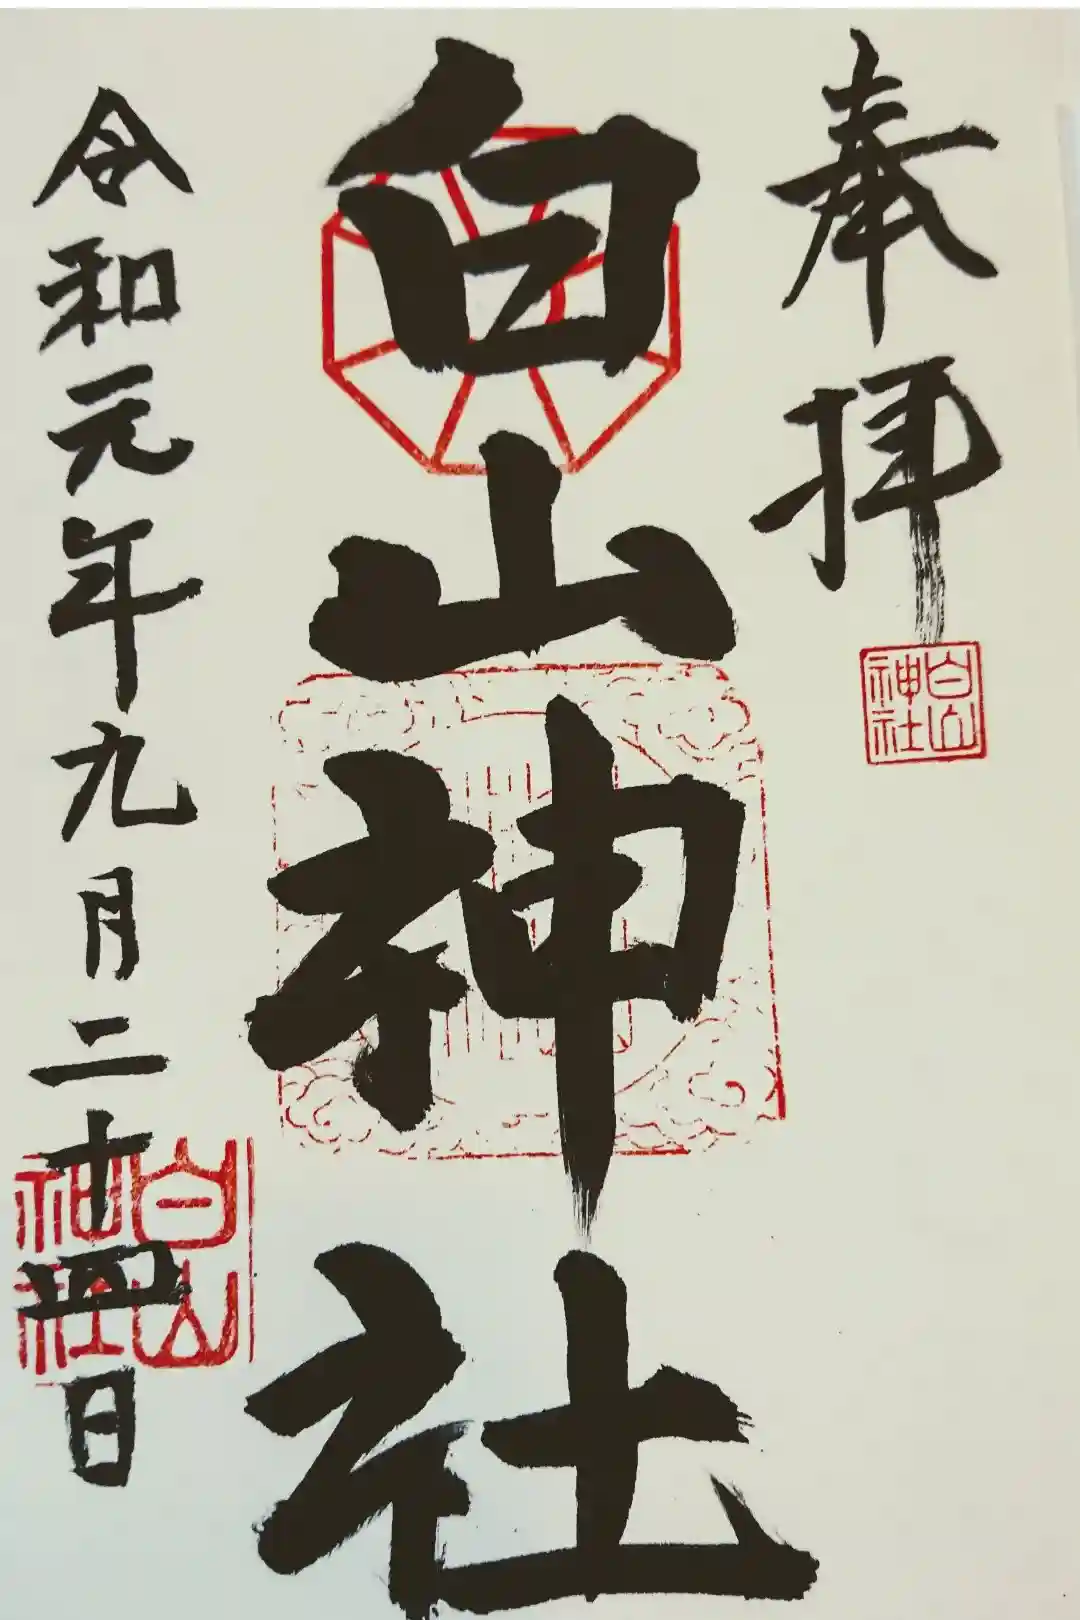 奉拝
白山神社
白山神社
令和元年九月二十四日
白山神社